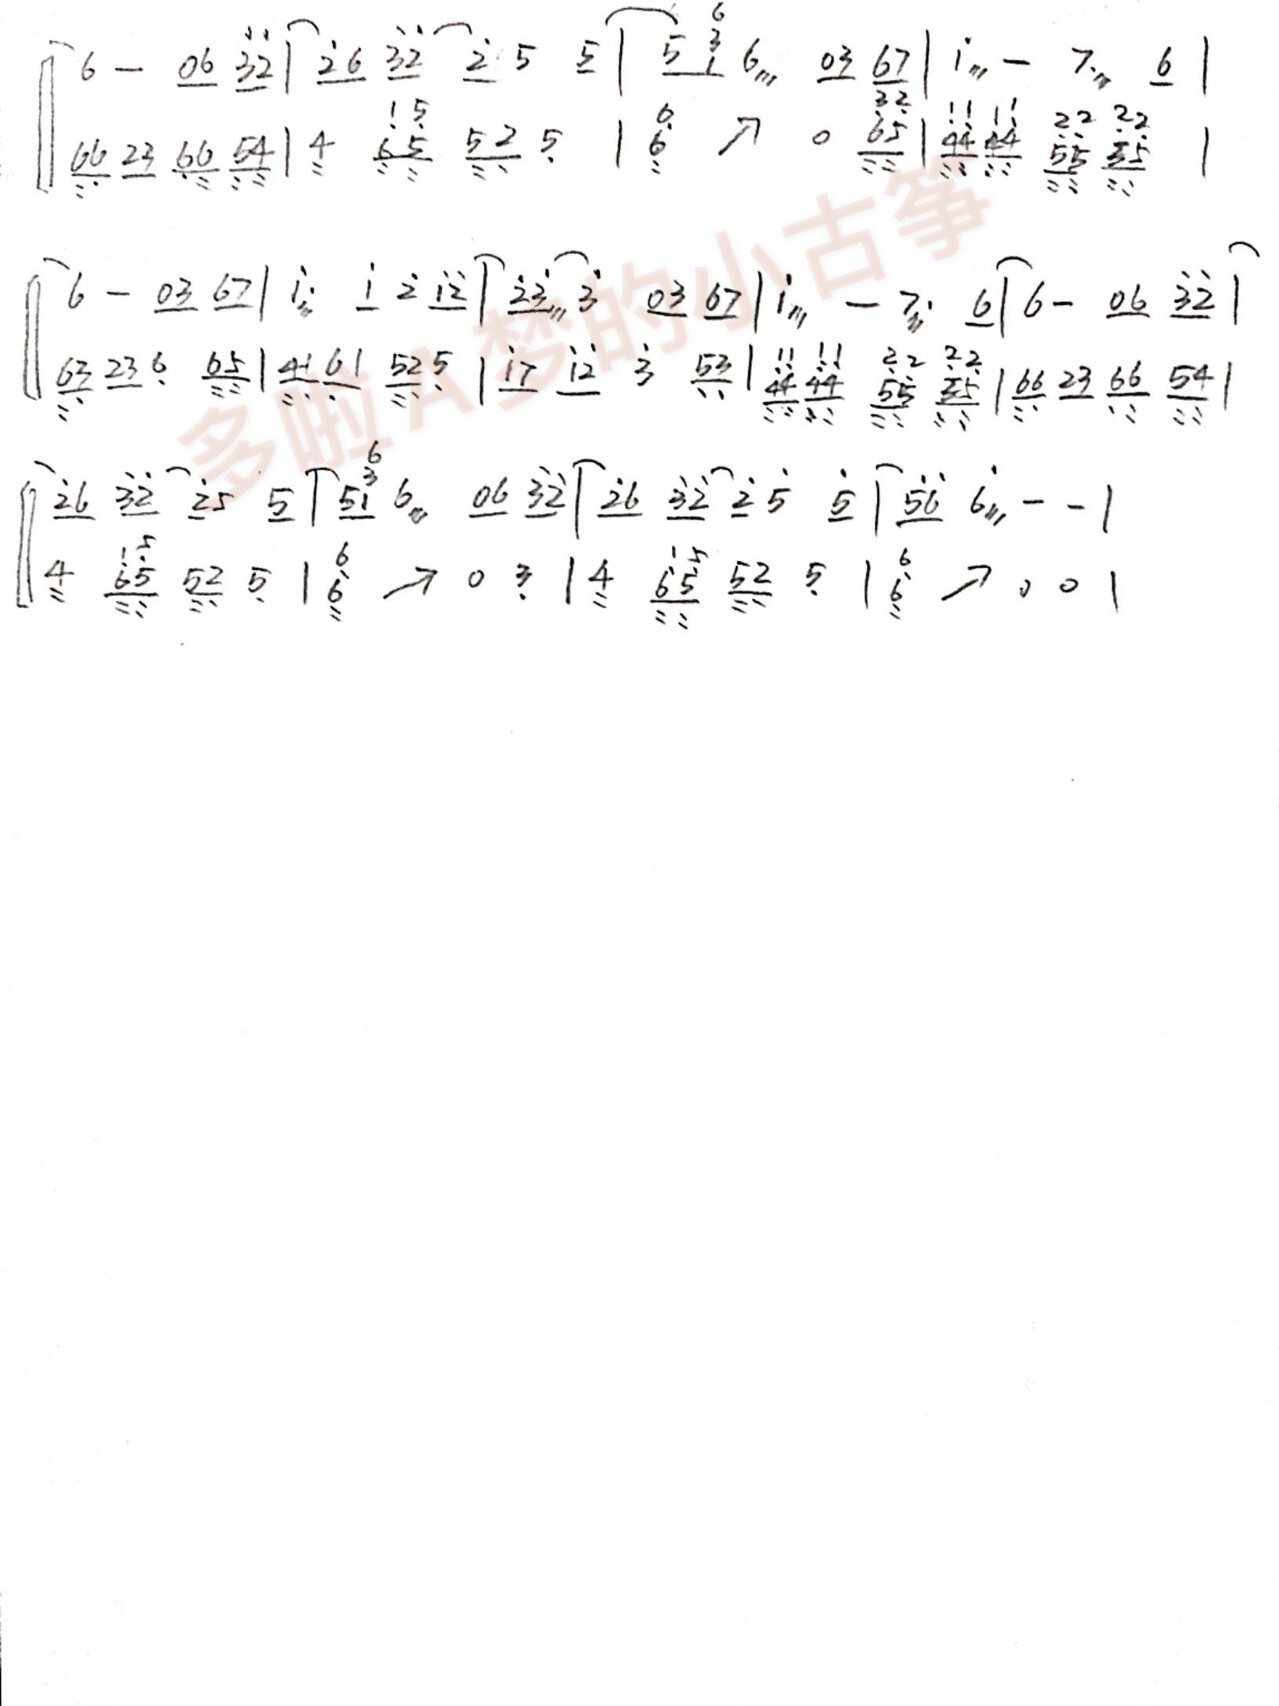 6 — 06 32 | 26 32 2 5 5 | 5 1 3 6 6 03 67 | 1 — 7. 6 |
66 23 66 54 | 4 65 15 52 5 | 6 6 ↗ 0 65 32 | 44 11 44 11 55 22 55 22 |
6 — 03 67 | 1. 1 2 12 | 23 3 03 67 | 1 — 7. 6 | 6 — 06 32 |
63 23 6 65 | 41 61 52 5 | 17 12 3 53 | 44 11 44 11 55 22 55 22 | 66 23 66 54 |
26 32 25 5 | 51 3 6 6 06 32 | 26 32 2 5 5 | 56 6 — — |
4 65 15 52 5 | 6 6 ↗ 0 3 | 4 65 15 52 5 | 6 6 ↗ 0 0 |
多啦A梦的小古筝